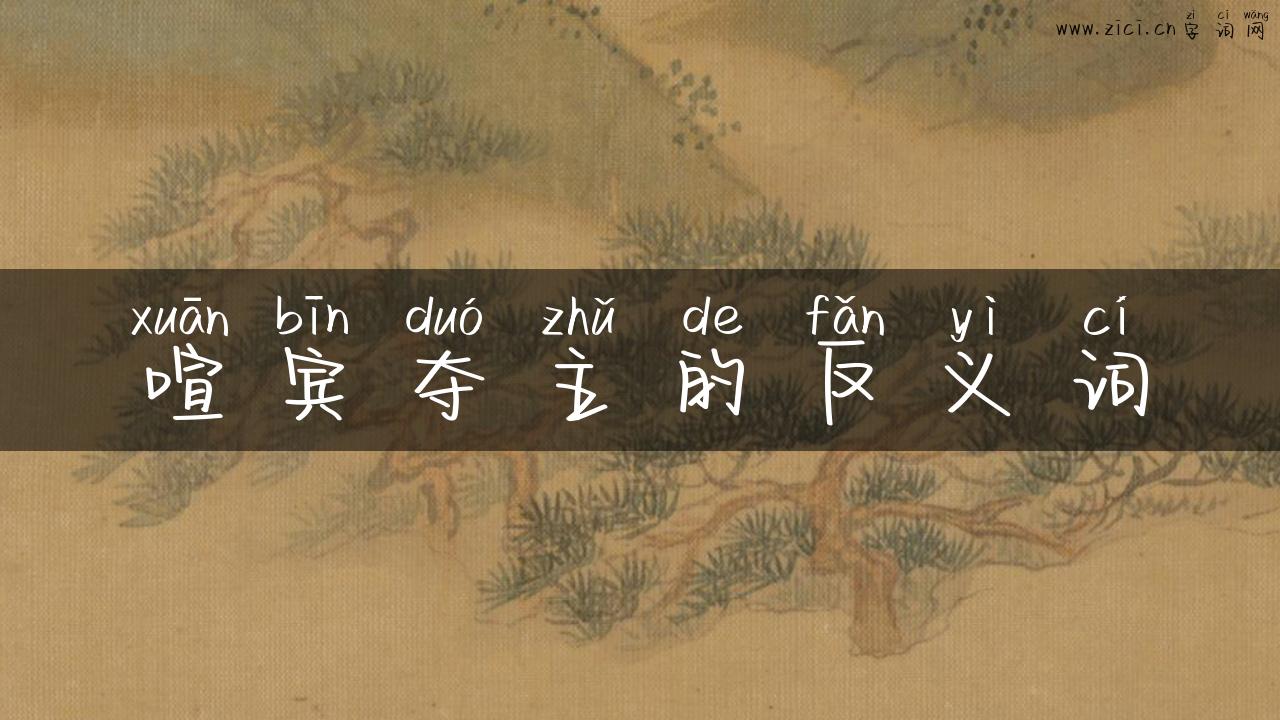 zì cí wǎng
www.zici.cn字词网
xuān bīn duó zhǔ de fǎn yì cí
喧宾夺主的反义词